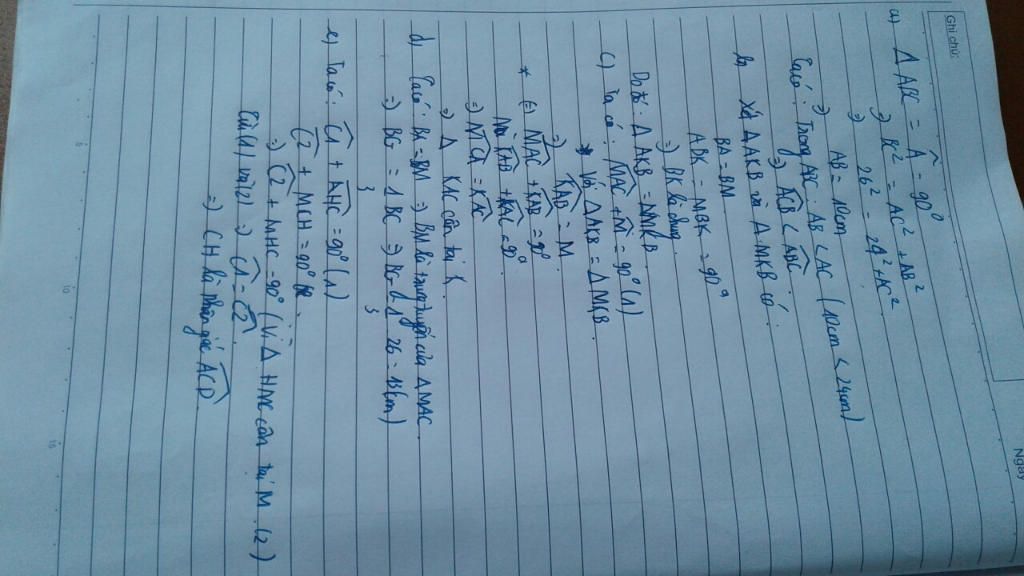 Ghi chú:
Ngày
a) Δ ABC = Â = 90°
⇒ BC² = AC² + AB²
⇒ 26² = 24² + AC²
⇒ AB = 10cm
Ta có : Trong ABC : AB < AC (10cm < 24cm)
⇒ ACB < ABC
b) Xét Δ AKB và Δ MKB có :
BA = BM
ABK = MBK = 90°
⇒ BK là chung
Do đó : Δ AKB = MKB
c) Ta có : MAC + M = 90° (1)
* Vì Δ AKB = Δ MKB
⇒ KAB = M
* (=) MAC + KAB = 90°
Mà KAB + KAC = 90°
⇒ = KAC
⇒ Δ KAC cân tại K
d) Ta có : BA = BM ⇒ BM là trung tuyến của Δ MAC
⇒ BG = 1/3 BC ⇒ BG = 1/3 26 = (cm)
e) Ta có : C1 + AHC = 90° (1)
C2 + MCH = 90°
⇒ C2 + MHC = 90° (Vì Δ HMC cân tại M (2)
Từ (1) và (2) ⇒ C1 = C2
⇒ CH là phân giác ACD
5
10
15